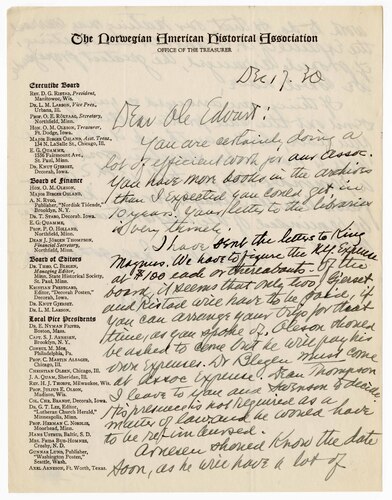 The Norwegian American Historical Association
OFFICE OF THE TREASURER
Dec 17. 30
Executive Board
REV. D. G. RISTAD, President,
Manitowoc, Wis.
DR. L. M. LARSON, Vice Pres.,
Urbana, Ill.
PROF. O. E. RÖLVAAG, Secretary,
Northfield, Minn.
HON. O. M. OLESON, Treasurer,
Ft. Dodge, Iowa.
MAJOR BIRGER OSLAND, Asst. Treas.,
134 N. LaSalle St., Chicago, Ill.
E. G. QUAMME,
St. Paul, Minn.
DR. KNUT GJERSET,
Decorah, Iowa.
Board of Finance
HON. O. M. OLESON,
MAJOR BIRGER OSLAND,
A. N. RYGG,
Publisher "Nordisk Tidende,"
Brooklyn, N. Y.
DR. T. STABO, Decorah, Iowa.
E. G. QUAMME,
PROF. P. O. HOLLAND,
Northfield, Minn.
DEAN J. JÖRGEN THOMPSON,
Financial Secretary,
Northfield, Minn.
Board of Editors
DR. THEO. C. BLEGEN,
Managing Editor,
Minn. State Historical Society,
St. Paul, Minn.
KRISTIAN PRESTGARD,
Editor, "Decorah Posten,"
Decorah, Iowa.
DR. KNUT GJERSET,
DR. L. M. LARSON.
Local Vice Presidents
DR. E. NYMAN FIGVED,
Boston, Mass.
CAPT. S. J. ARNESEN,
Brooklyn, N. Y.
CONSUL M. MOE,
Philadelphia, Pa.
PROF. C. MARIUS ALSAGER,
Chicago, Ill.
CHRISTIAN OLSEN, Chicago, Ill.
J. A. QUAM, Sheridan, Ill.
REV. H. J. THORPE, Milwaukee, Wis.
PROF. JULIUS E. OLSON,
Madison, Wis.
DR. G. T. LEE, Editor,
"Lutheran Church Herald,"
Minneapolis, Minn.
PROF. HERMAN C. NORDLIE,
Moorhead, Minn.
HANS USTRUD, Baltic, S. D.
GUNNAR LUND, Publisher,
"Washington Posten,"
Seattle, Wash.
AXEL ARNESON, Ft. Worth, Texas.
Dear Ole Edvart:
You are certainly doing a
lot of efficient work for our Assoc.
You have more books in the archives
than I expected you could get in
10 years. Your letter to the libraries
is very timely.
I have sent the letters to King
Magnus. We have to figure the RR Expense
at $100 each or thereabouts. Of the
board, it seems that only two, Gjerset
and Ristad will have to be paid, if
you can arrange your trips for that
time, as you spoke of. Oleson should
be asked to come but he will pay his
own expenses. Dr Blegen must come
at Assoc Expense. Dean Thompson
I leave to you and Swenson to decide.
His presence is not required as a
matter of law and he would have
to be reimbursed.
Arnesen should know the date
soon, as he will have a lot of